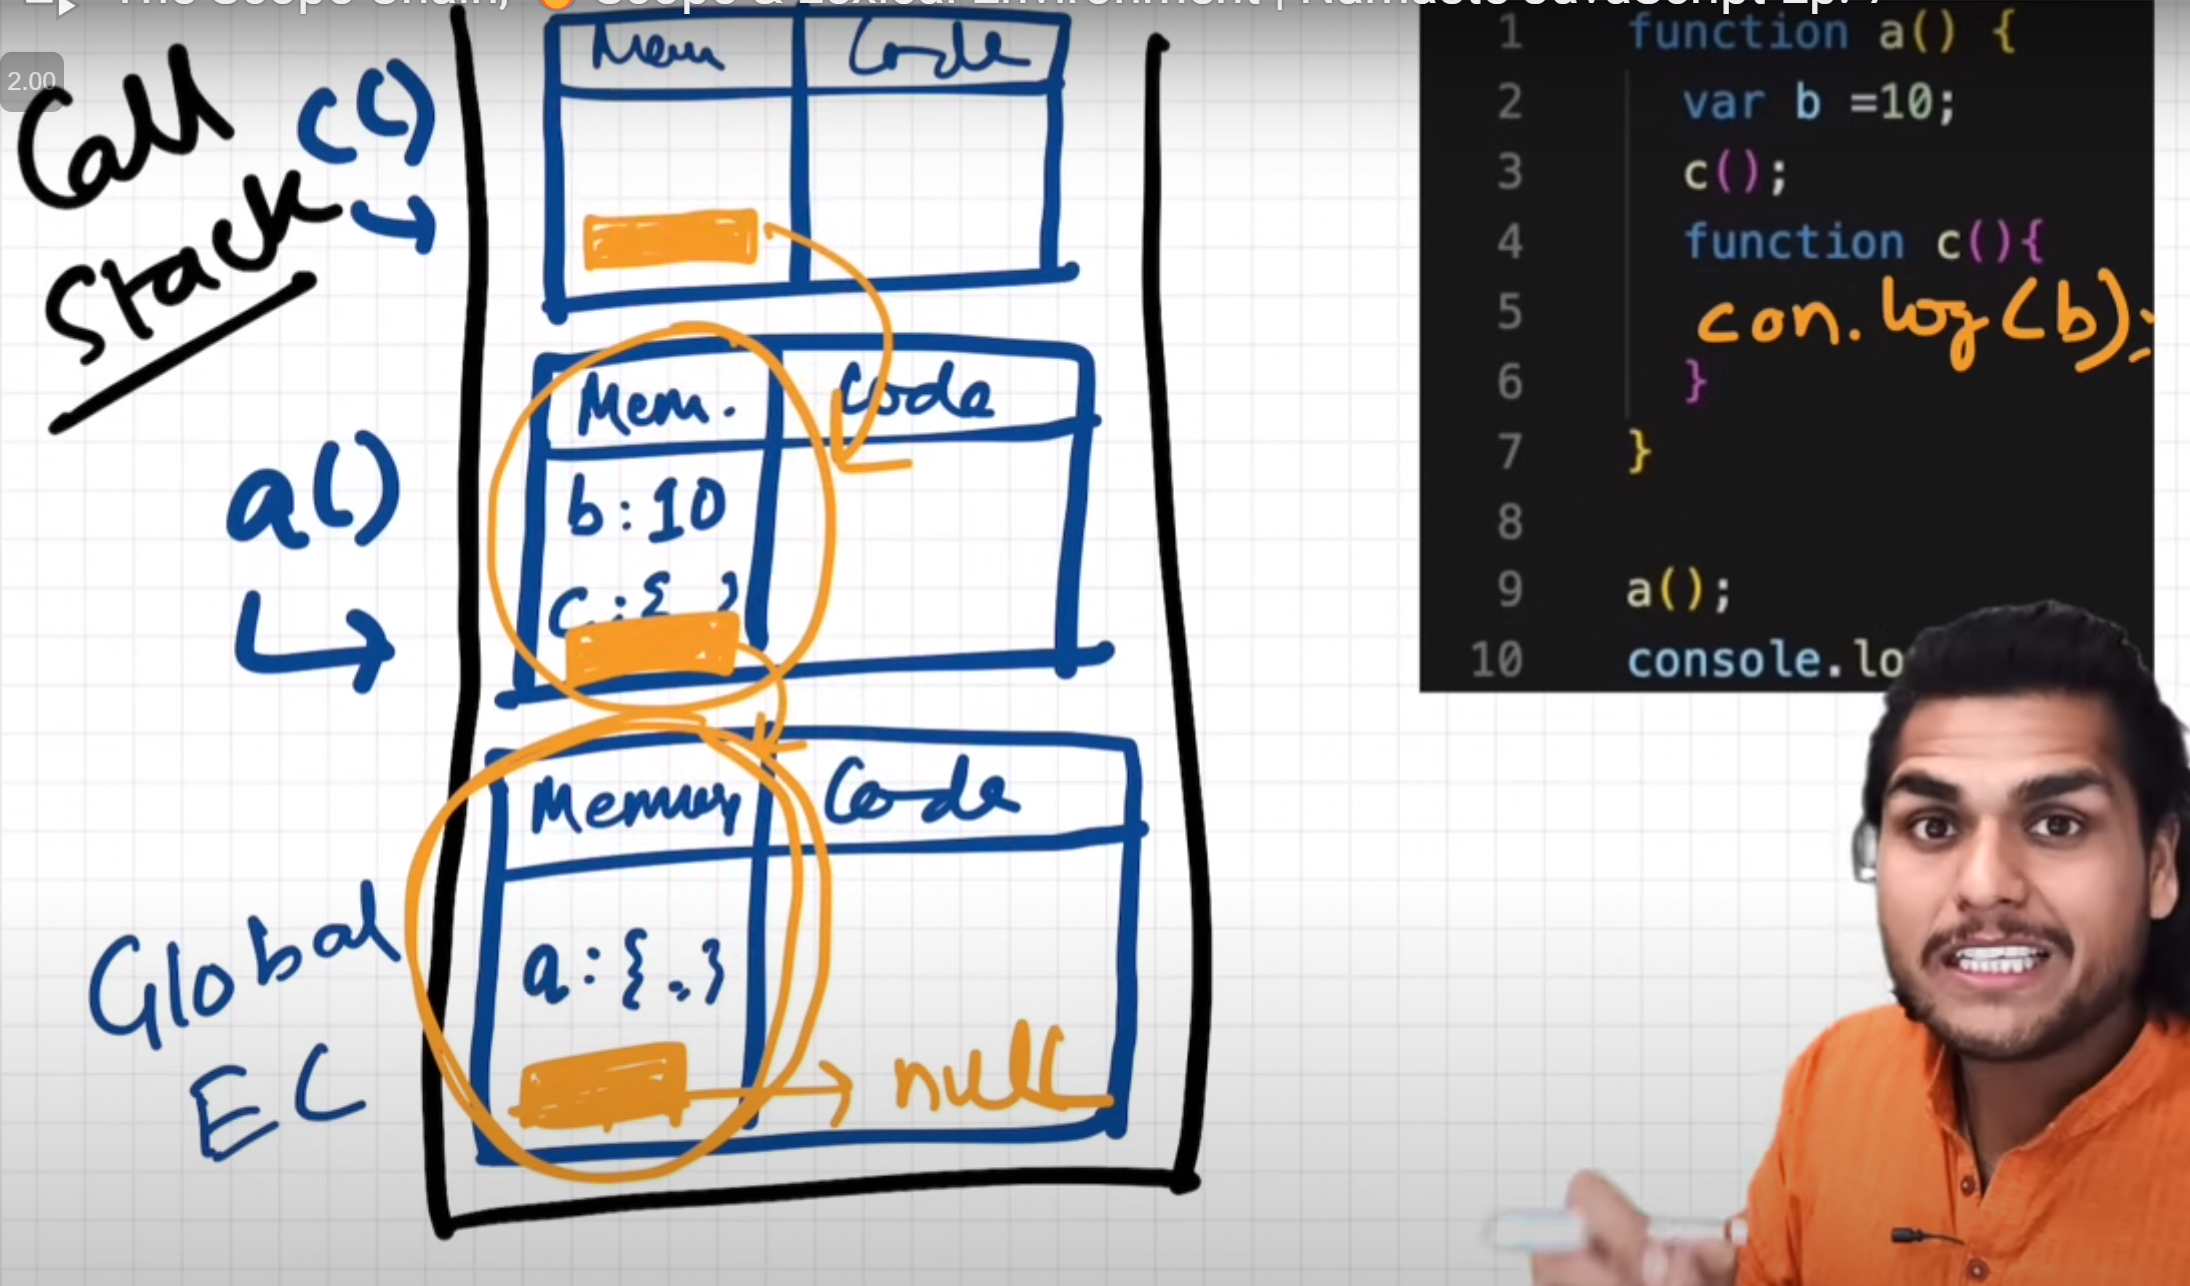 The Scope Chain, 🔥 Scope & Lexical Environment | Namaste JavaScript Ep. 7
2.00
Call
Stack
c()
Mem
Code
a()
Mem.
Code
b:10
C:{ }
Global
EC
Memory
Code
a:{.,}
null
1 function a() {
2 var b =10;
3 c();
4 function c(){
5 con.log(b);
6 }
7 }
8
9 a();
10 console.lo